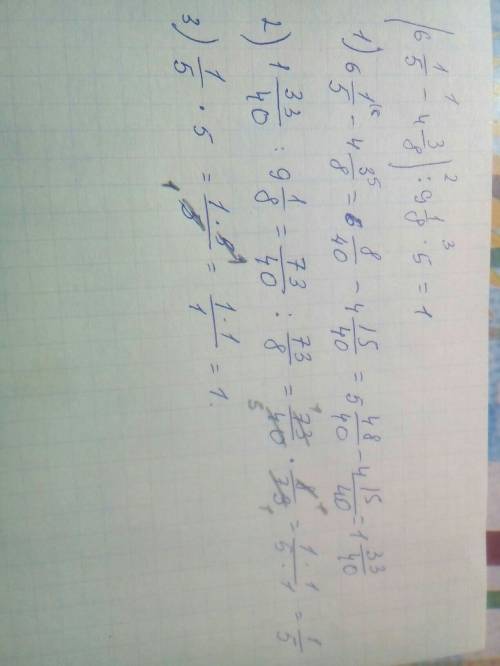 (6 1/5 - 4 3/8) : 9 1/8 · 5 = 1
1) 6 1/5 - 4 3/8 = 6 8/40 - 4 15/40 = 5 48/40 - 4 15/40 = 1 33/40
2) 1 33/40 : 9 1/8 = 73/40 : 73/8 = 73/40 · 8/73 = 1·1/5·1 = 1/5
3) 1/5 · 5 = 1·5/5 = 1·1/1 = 1.